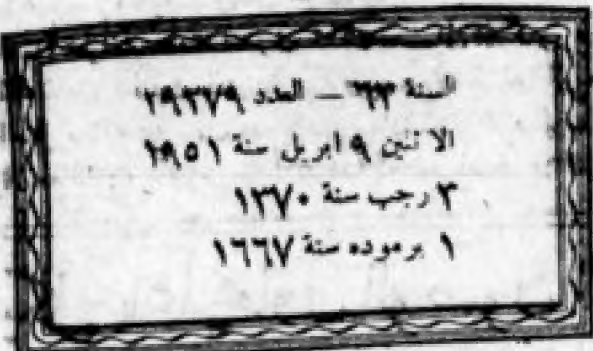 السنة ٦٣ — العدد ١٩٣٧٩
الاثنين ٩ ابريل سنة ١٩٥١
٣ رجب سنة ١٣٧٠
١ برموده سنة ١٦٦٧